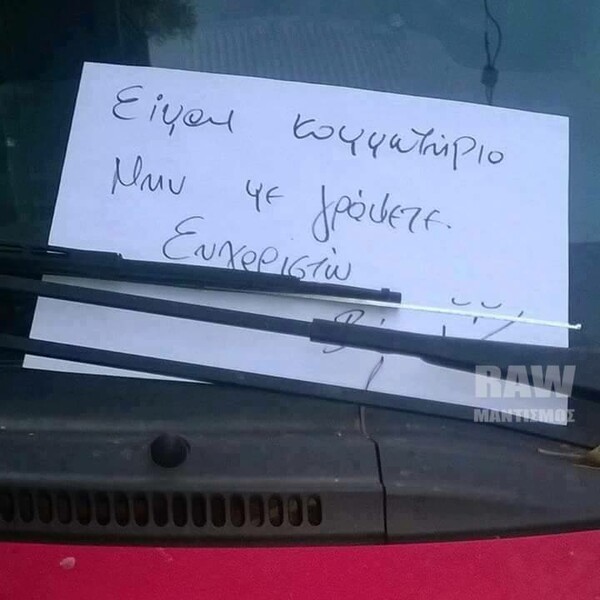 Είμαι κομματήριο
Μην με γράψετε.
Ευχαριστώ
RAW
ΜΑΝΤΙΣΜΟΣ